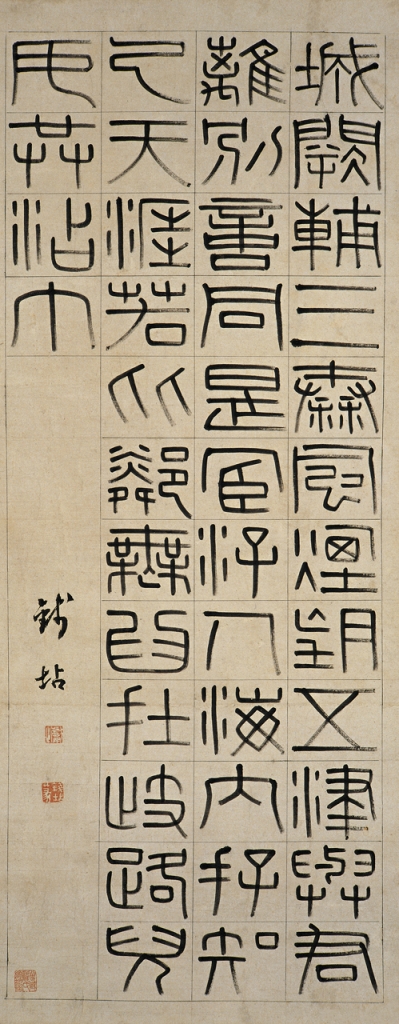 城闕輔三秦風煙望五津與君
離別意同是宦游人海內存知
己天涯若比鄰無為在歧路兒
女共沾巾
錢坫